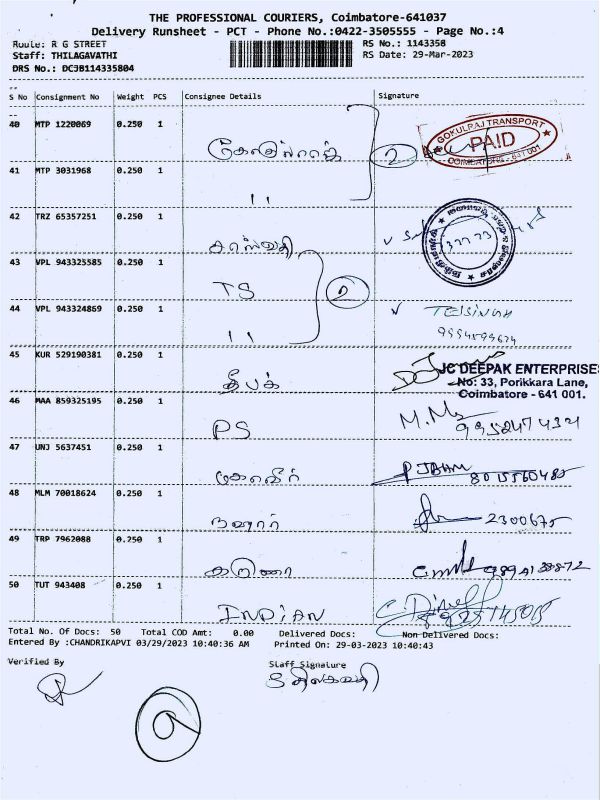 THE PROFESSIONAL COURIERS, Coimbatore-641037
Delivery Runsheet - PCT - Phone No.:0422-3505555 - Page No.:4
Route: R G STREET
RS No.: 1143358
Staff: THILAGAVATHI
RS Date: 29-Mar-2023
DRS No.: DCJB114335804
S No Consignment No Weight PCS Consignee Details Signature
40 MTP 1220069 0.250 1
GOKULRAJ TRANSPORT
PAID
COIMBATORE - 641 001
2
41 MTP 3031968 0.250 1 ''
42 TRZ 65357251 0.250 1
43 VPL 943325585 0.250 1 TS
2
44 VPL 943324869 0.250 1 ''
45 KUR 529190381 0.250 1 தீபக்
JC DEEPAK ENTERPRISES
No: 33, Porikkara Lane,
Coimbatore - 641 001.
46 MAA 859325195 0.250 1 PS
9952474321
47 UNJ 5637451 0.250 1
48 MLM 70018624 0.250 1 2300675
49 TRP 7962088 0.250 1
50 TUT 943408 0.250 1 INDIAN
Total No. Of Docs: 50 Total COD Amt: 0.00 Delivered Docs: Non Delivered Docs:
Entered By :CHANDRIKAPVI 03/29/2023 10:40:36 AM Printed On: 29-03-2023 10:40:43
Verified By
Staff Signature